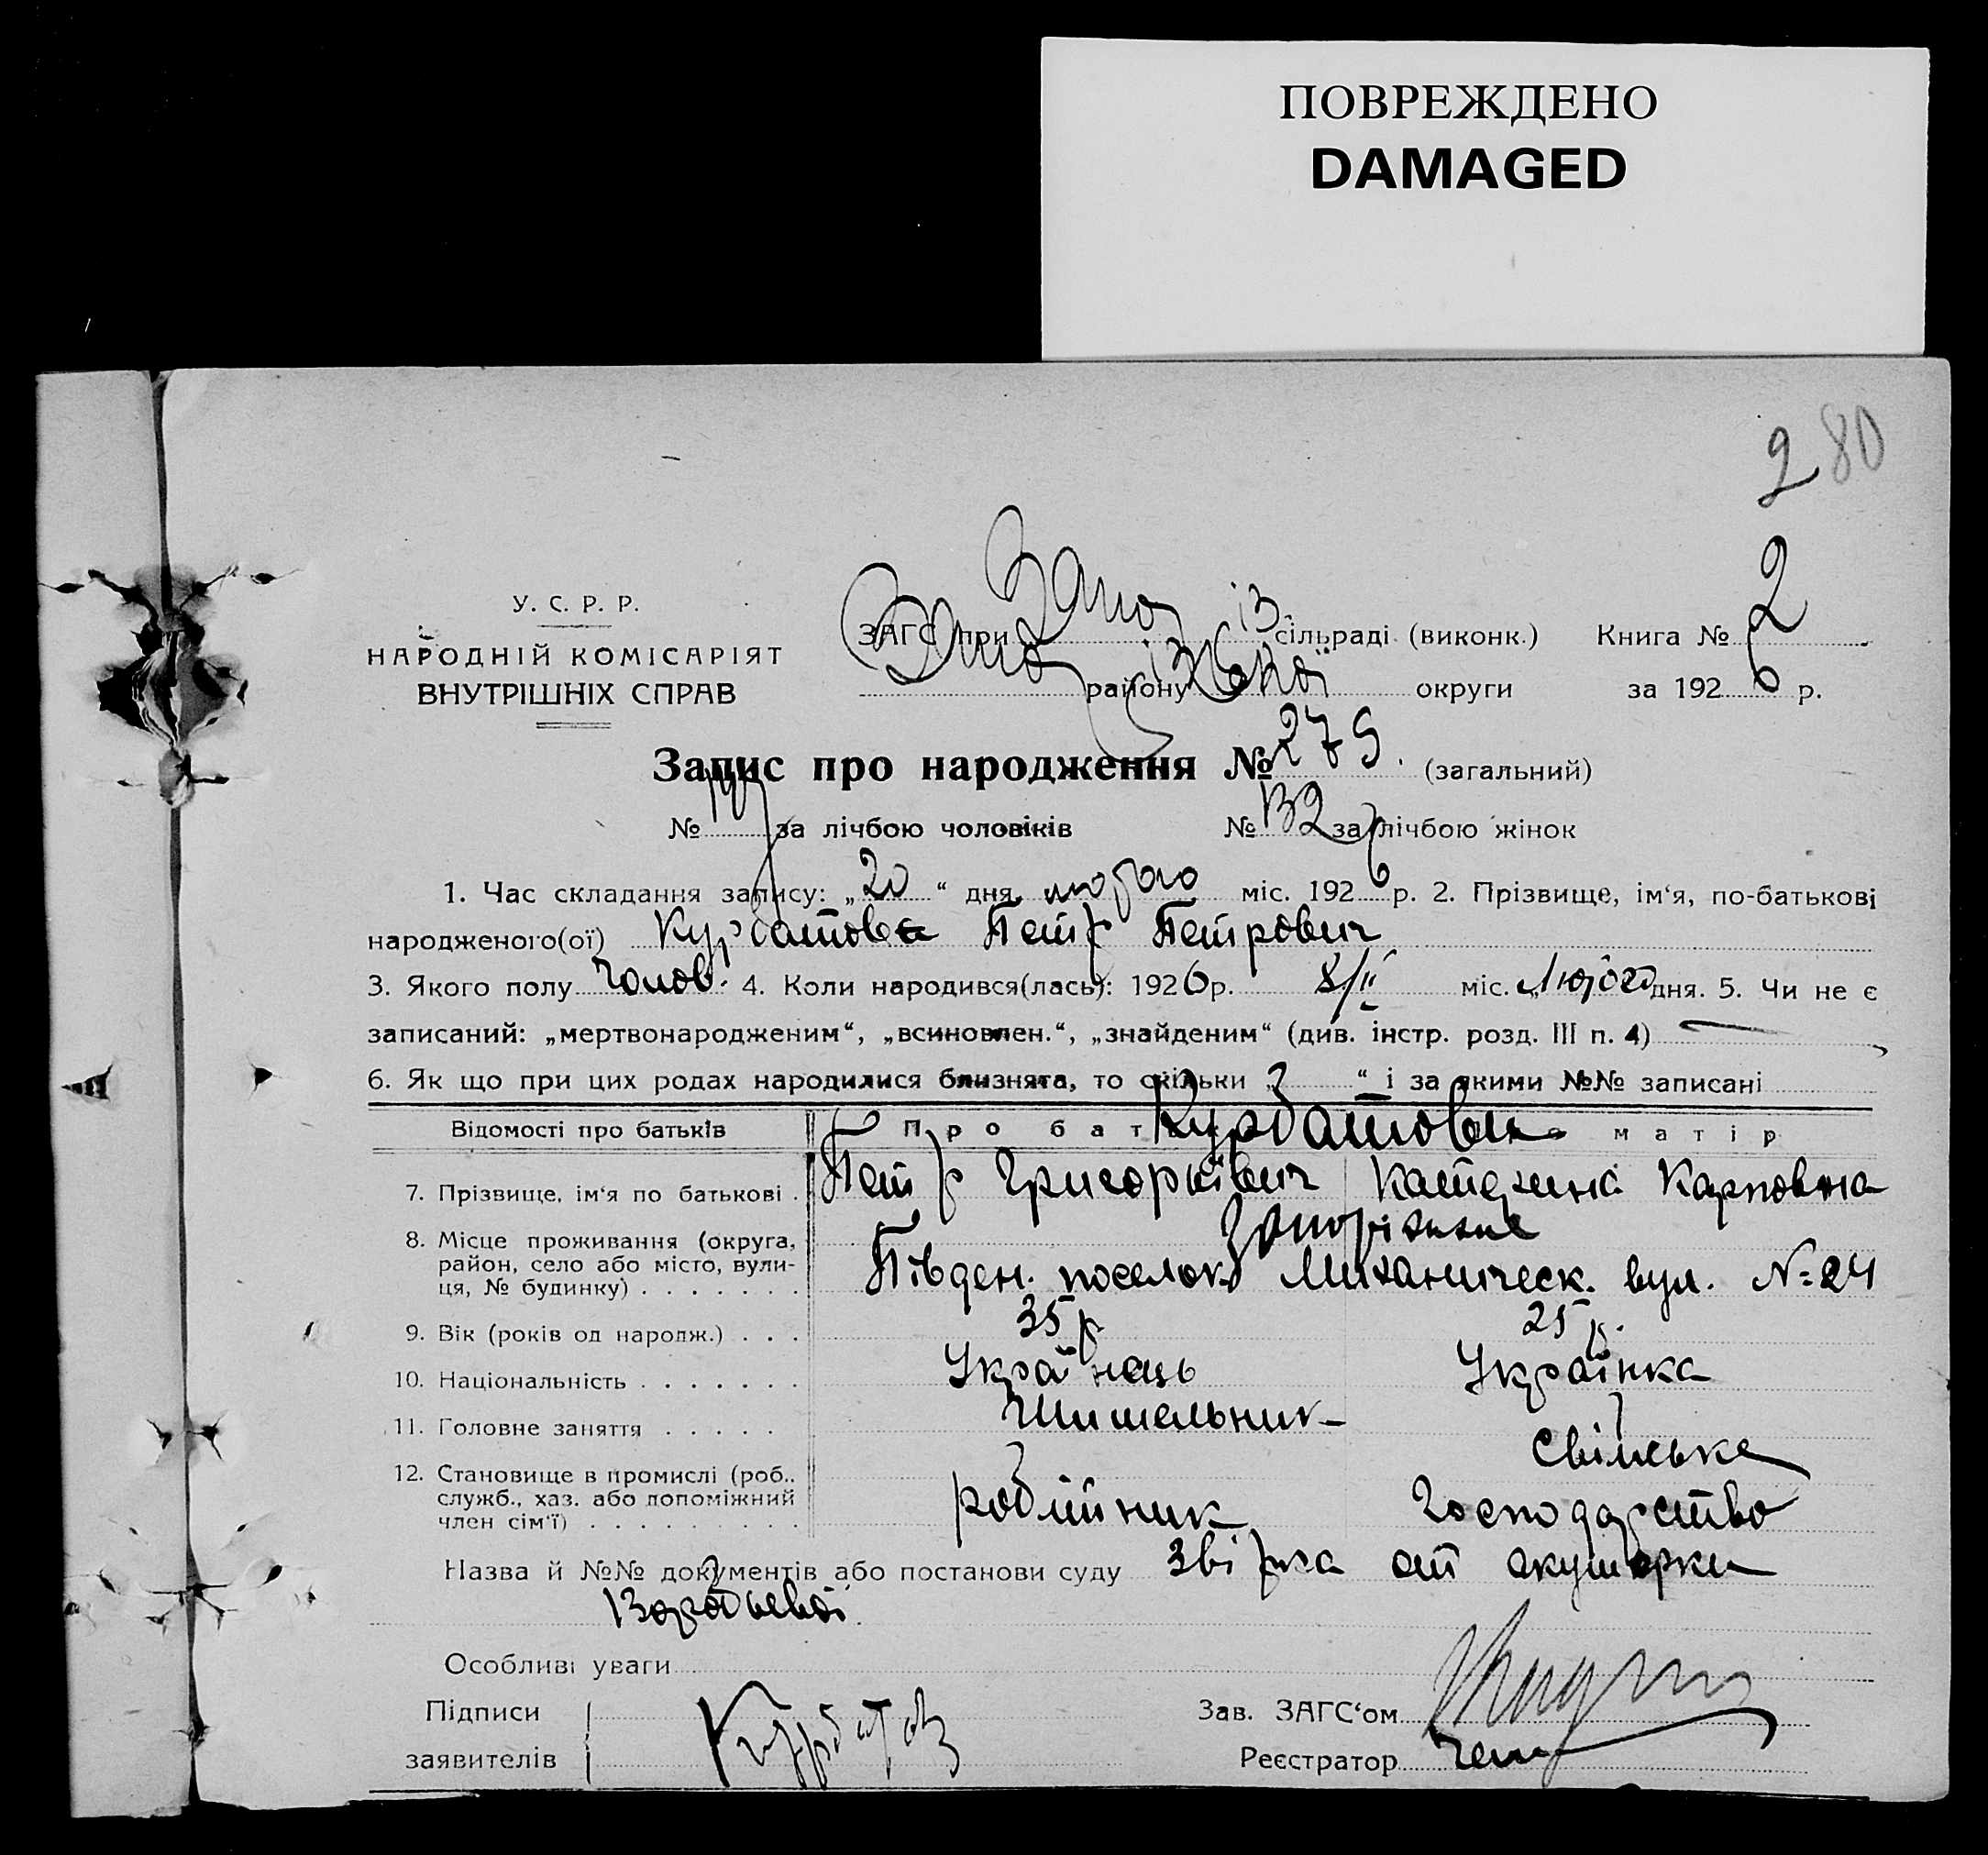 ПОВРЕЖДЕНО
DAMAGED
280
У. С. Р. Р.
НАРОДНІЙ КОМІСАРІЯТ
ВНУТРІШНІХ СПРАВ
ЗАГС при сільраді (виконк.) Книга № 2
району округи за 1926 р.
Запис про народження № 279. (загальний)
№ за лічбою чоловіків № 132 за лічбою жінок
1. Час складання запису: „20“ дня лютого міс. 1926 р. 2. Прізвище, ім‘я, по-батькові
народженого(ої) Курбатов Петр Петрович
3. Якого полу Чолов. 4. Коли народився(лась): 1926 р. 8/II міс. Лютого дня. 5. Чи не є
записаний: „мертвонародженим“, „всиновлен.“, „знайденим“ (див. інстр. розд. III п. 4) —
6. Як що при цих родах народилися близнята, то скільки „ “ і за якими №№ записані
Відомості про батьків Про бат Курбатови матір
7. Прізвище, ім‘я по батькові . Петр Григорьівич Катерина Карповна
Запоріжжя
8. Місце проживання (округа, район, село або місто, вули-ця, № будинку) . . . . . . . Південн. поселок Механическ. вул. № 24
9. Вік (років од народж.) . . . 35 р. 25 р.
10. Національність . . . . . . . Українець Українка
11. Головне заняття . . . . . Свійське
12. Становище в промислі (роб., служб., хаз. або допоміжний член сім‘ї) . . . . . . . . . робітник Господарство
Назва й №№ документів або постанови суду от акушорки
Особливі уваги
Підписи Курбатов Зав. ЗАГС‘ом
заявителів Реєстратор